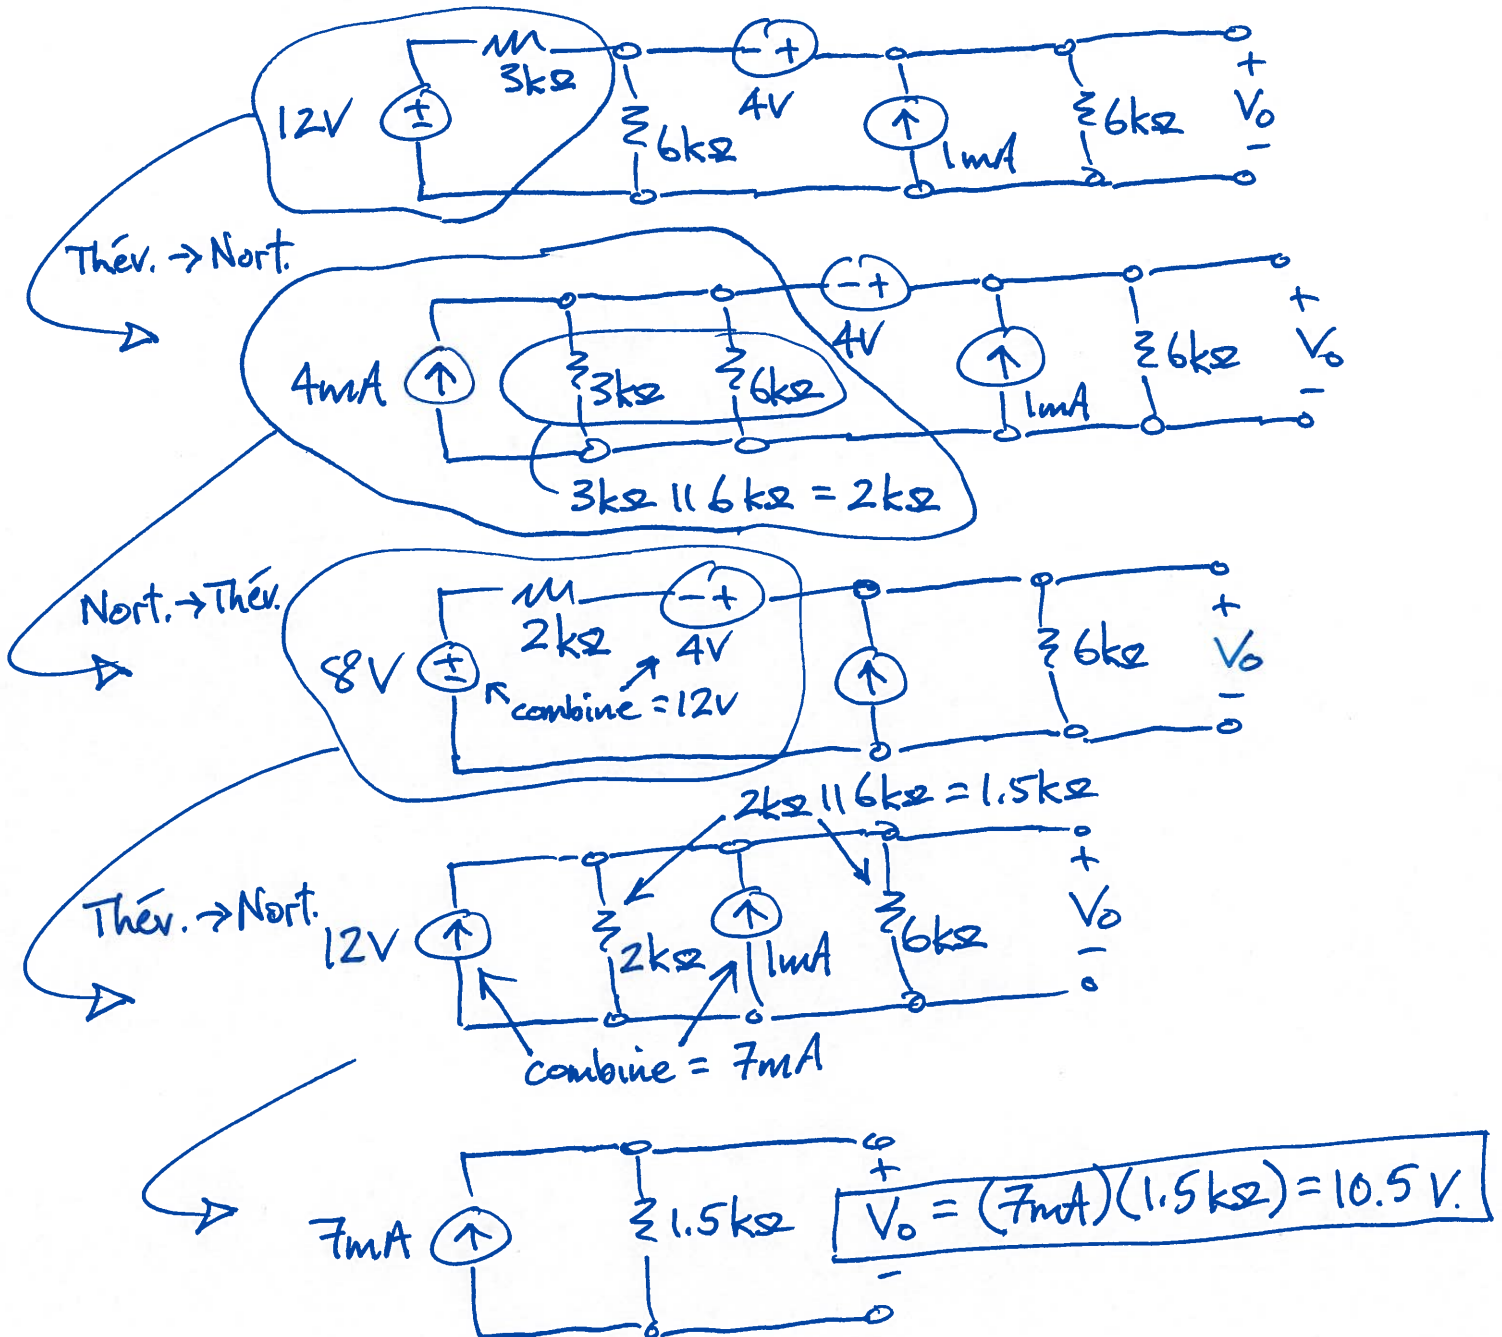 3kΩ
12V ± 6kΩ - + 4V ↑ 1mA 6kΩ + Vo -
Thév. → Nort.
4mA ↑ 3kΩ 6kΩ - + 4V ↑ 1mA 6kΩ + Vo -
3kΩ || 6kΩ = 2kΩ
Nort. → Thév.
8V ± 2kΩ - + 4V ↑ 6kΩ + Vo -
combine = 12V
2kΩ || 6kΩ = 1.5kΩ
Thév. → Nort.
12V ↑ 2kΩ ↑ 1mA 6kΩ + Vo -
combine = 7mA
7mA ↑ 1.5kΩ + -
Vo = (7mA)(1.5kΩ) = 10.5 V.